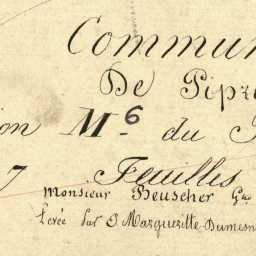 Commun
De Pipr
ion M⁶ du
7 Feuilles
Monsieur Heuscher Gme
Levée Par J. Margueritte-Dumesn